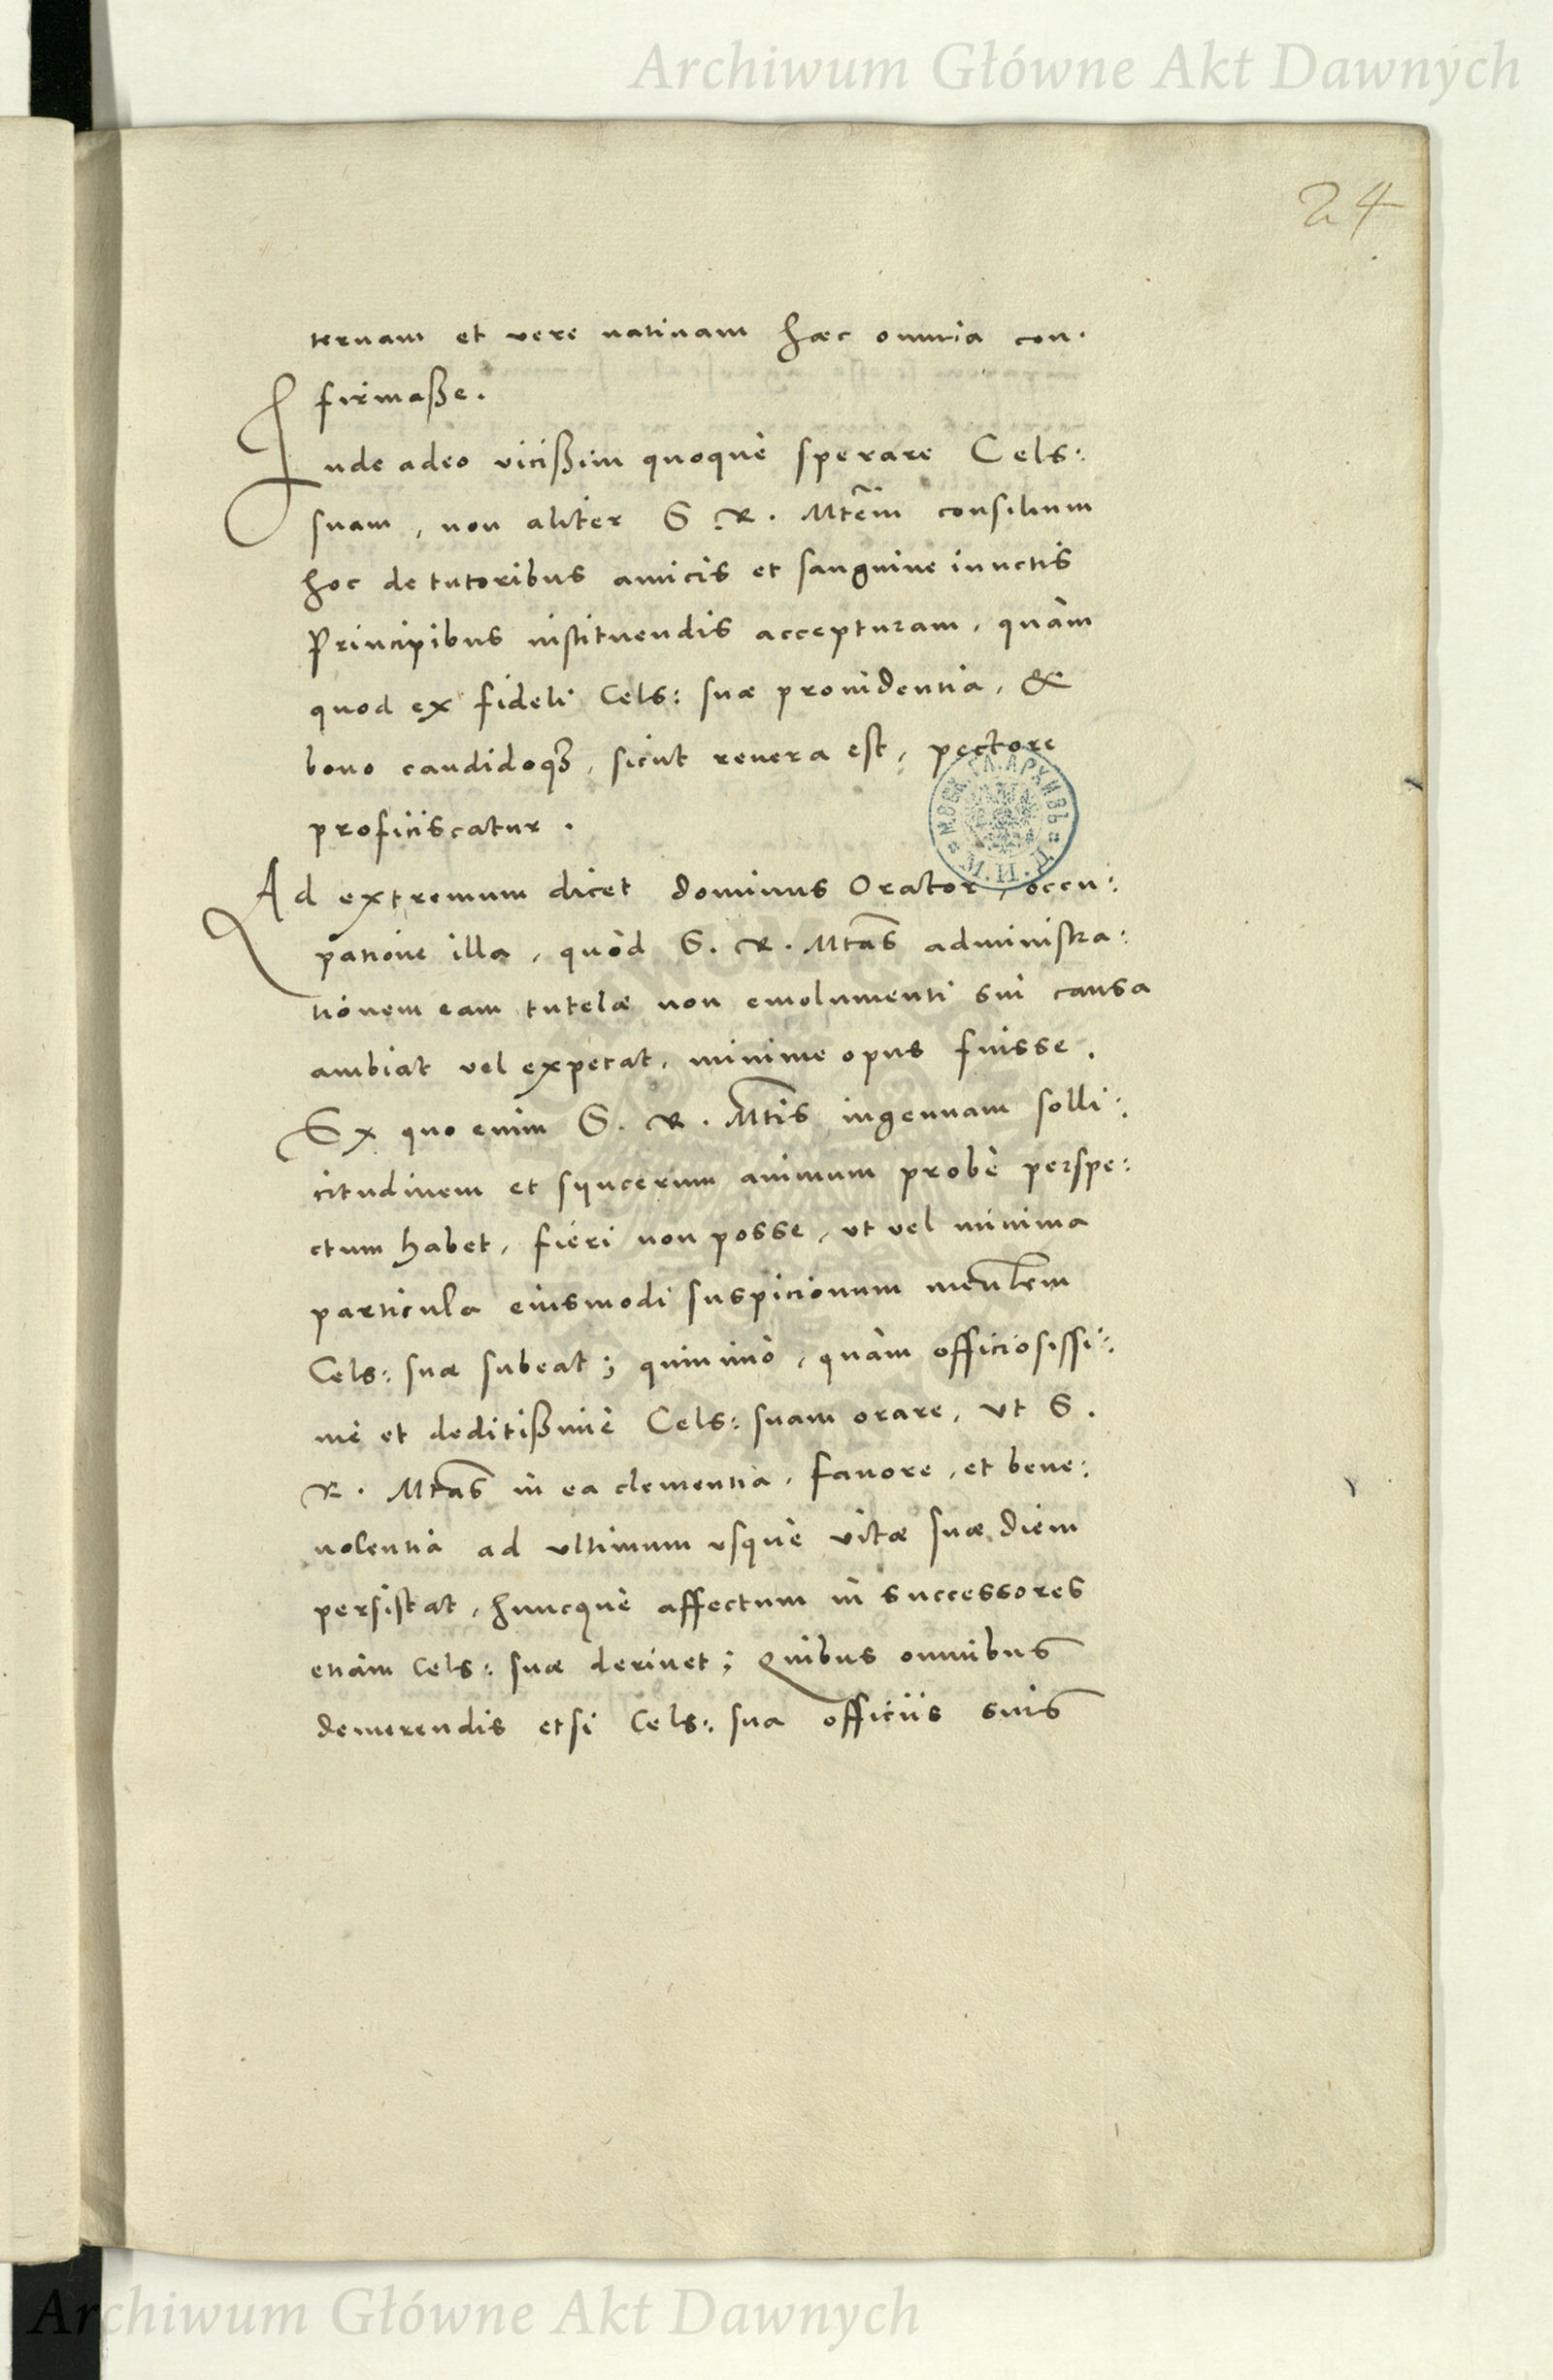 Archiwum Główne Akt Dawnych
24
ternam et vere natiuam hæc omnia con.
firmaße.
Inde adeo vicißim quoquè sperare Cels:
suam, non aliter S. R. Mtem̃ consilium
hoc de tutoribus amicis et sanguine iunctis
Principibus instituendis accepturam, quàm
quod ex fideli Cels: suæ prouidentia, &
bono candidoqꝫ, sicut reuera est, pectore
proficiscatur.
Ad extremum dicet dominus Orator, occu:
patione illa, quòd S. R. Mtas administra:
tionem eam tutelæ non emolumenti sui causa
ambiat vel expetat, minime opus fuisse.
Ex quo enim S. R. Mtis ingenuam solli:
citudinem et syncerum animum probè perspe:
ctum habet, fieri non posse, vt vel minima
particula eiusmodi suspicionum mentem
Cels: suæ subeat; quinimò, quàm officiosissi:
mè et deditißimè Cels: suam orare, vt S.
R. Mtas in ea clementia, fauore, et bene:
uolentia ad vltimum vsquè vitæ suæ diem
persistat, huncquè affectum in successores
etiam Cels: suæ deriuet; Quibus omnibus
demerendis etsi Cels: sua officiis suis
Archiwum Główne Akt Dawnych